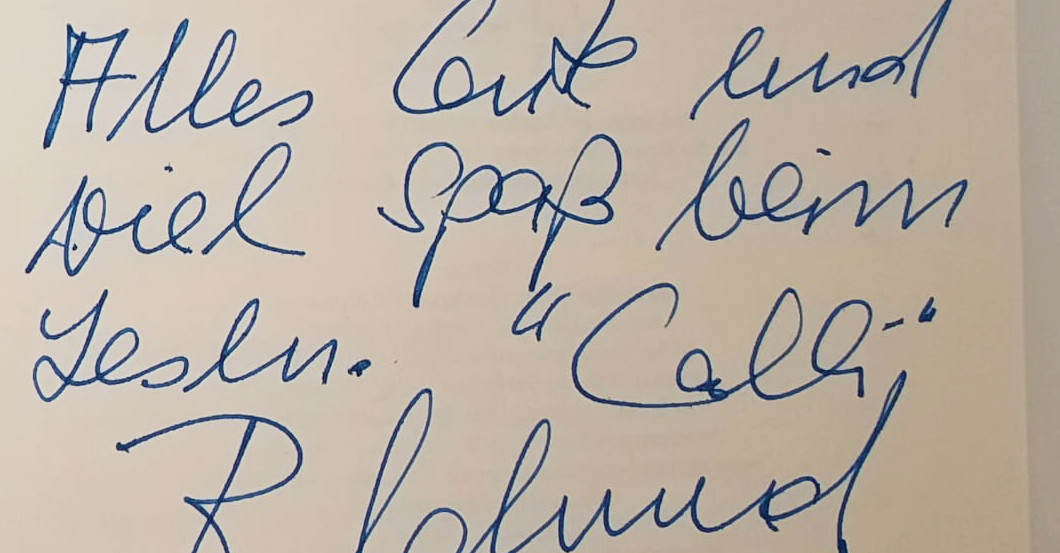 Alles Gute und
viel Spaß beim
Lesen. "Calli"